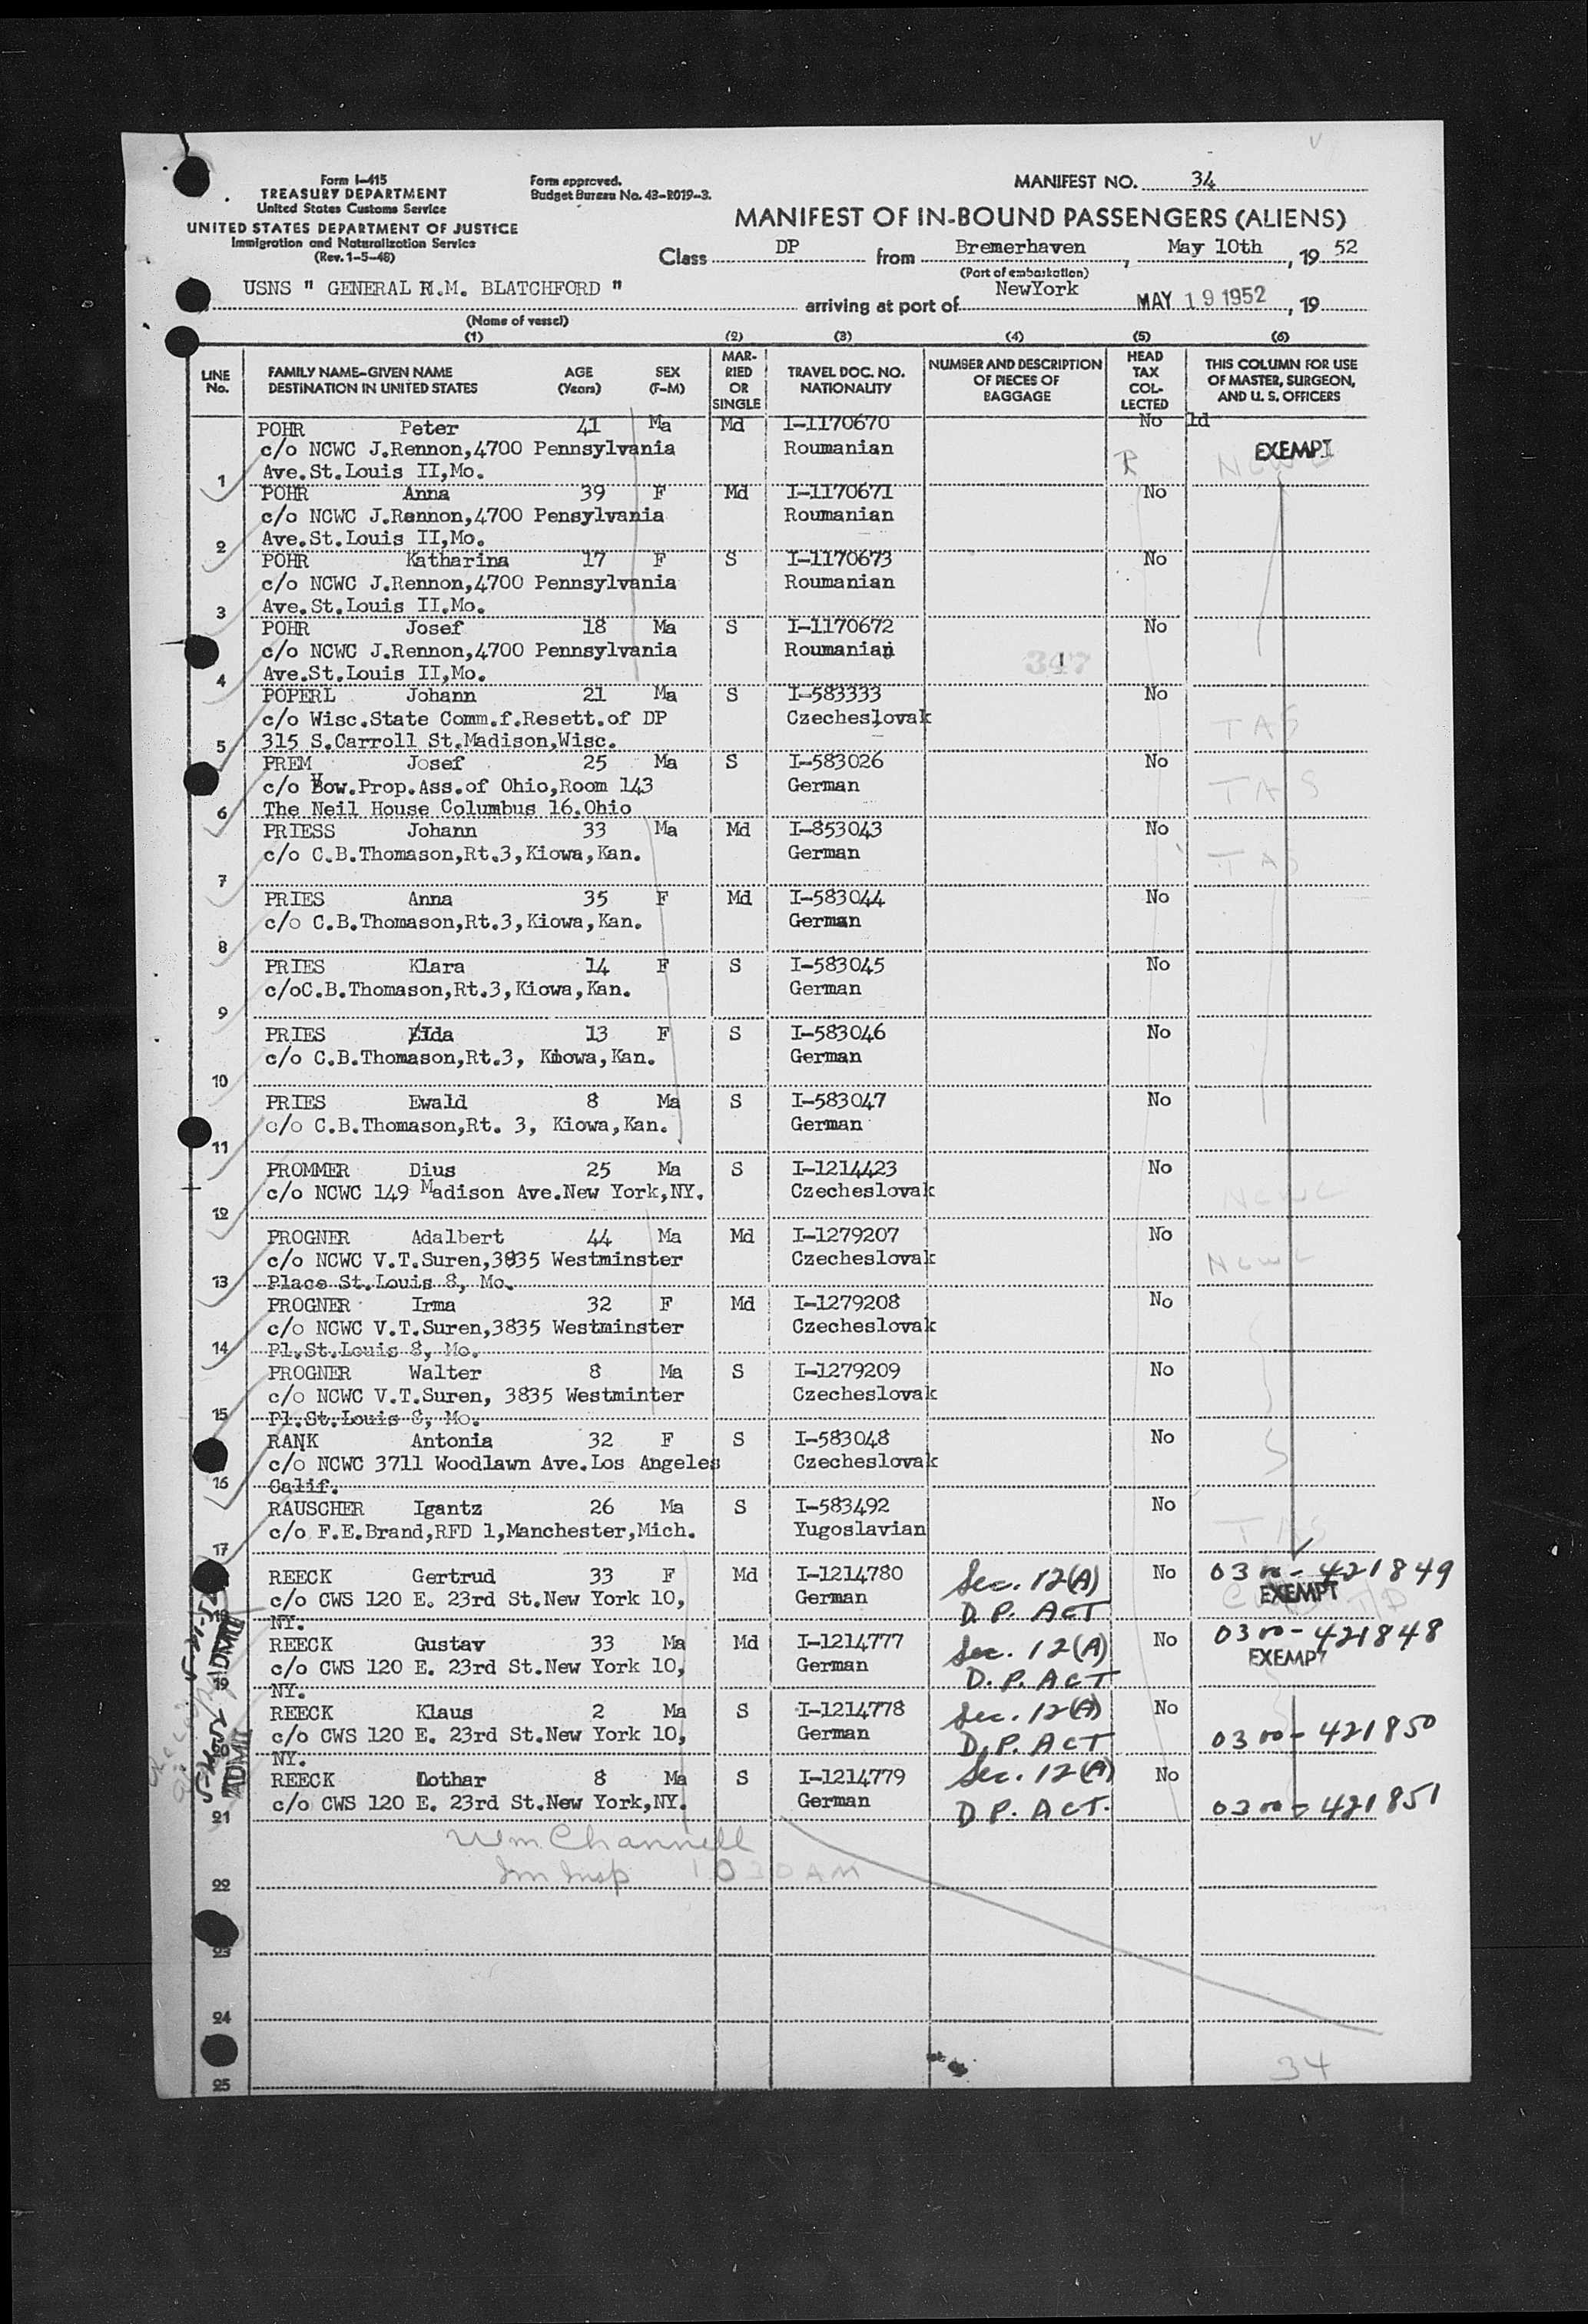 Form I-415
TREASURY DEPARTMENT
United States Customs Service
UNITED STATES DEPARTMENT OF JUSTICE
Immigration and Naturalization Service
(Rev. 1-5-48)
Form approved.
Budget Bureau No. 43-R019-3.
MANIFEST NO. 34
MANIFEST OF IN-BOUND PASSENGERS (ALIENS)
Class DP from Bremerhaven, May 10th, 19 52
(Port of embarkation)
USNS " GENERAL R.M. BLATCHFORD "
arriving at port of NewYork MAY 19 1952, 19
(Name of vessel)
(1) (2) (3) (4) (5) (6)
LINE No.
FAMILY NAME-GIVEN NAME DESTINATION IN UNITED STATES
AGE (Years)
SEX (F-M)
MARRIED OR SINGLE
TRAVEL DOC. NO. NATIONALITY
NUMBER AND DESCRIPTION OF PIECES OF BAGGAGE
HEAD TAX COLLECTED
THIS COLUMN FOR USE OF MASTER, SURGEON, AND U. S. OFFICERS
POHR Peter 41 Ma Md I-1170670 No ld
c/o NCWC J.Rennon,4700 Pennsylvania Roumanian EXEMPT
1 Ave.St.Louis II,Mo. R NCWC
POHR Anna 39 F Md I-1170671 No
c/o NCWC J.Rennon,4700 Pensylvania Roumanian
2 Ave.St.Louis II,Mo.
POHR Katharina 17 F S I-1170673 No
c/o NCWC J.Rennon,4700 Pennsylvania Roumanian
3 Ave.St.Louis II.Mo.
POHR Josef 18 Ma S I-1170672 No
c/o NCWC J.Rennon,4700 Pennsylvania Roumanian 347
4 Ave.St.Louis II,Mo.
POPERL Johann 21 Ma S I-583333 No
c/o Wisc.State Comm.f.Resett.of DP Czecheslovak TAS
5 315 S.Carroll St.Madison,Wisc.
PREM Josef 25 Ma S I-583026 No
c/o How.Prop.Ass.of Ohio,Room 143 German TAS
6 The Neil House Columbus 16.Ohio
PRIESS Johann 33 Ma Md I-853043 No
c/o C.B.Thomason,Rt.3,Kiowa,Kan. German TAS
7
PRIES Anna 35 F Md I-583044 No
c/o C.B.Thomason,Rt.3,Kiowa,Kan. German
8
PRIES Klara 14 F S I-583045 No
c/oC.B.Thomason,Rt.3,Kiowa,Kan. German
9
PRIES Ida 13 F S I-583046 No
c/o C.B.Thomason,Rt.3, Kiowa,Kan. German
10
PRIES Ewald 8 Ma S I-583047 No
c/o C.B.Thomason,Rt. 3, Kiowa,Kan. German
11
PROMMER Dius 25 Ma S I-1214423 No
c/o NCWC 149 Madison Ave.New York,NY. Czecheslovak NCWC
12
PROGNER Adalbert 44 Ma Md I-1279207 No
c/o NCWC V.T.Suren,3835 Westminster Czecheslovak NCWC
13 Place St.Louis 8, Mo.
PROGNER Irma 32 F Md I-1279208 No
c/o NCWC V.T.Suren,3835 Westminster Czecheslovak
14 Pl.St.Louis 8, Mo.
PROGNER Walter 8 Ma S I-1279209 No
c/o NCWC V.T.Suren, 3835 Westminter Czecheslovak
15 Pl.St.Louis 8, Mo.
RANK Antonia 32 F S I-583048 No
c/o NCWC 3711 Woodlawn Ave.Los Angeles Czecheslovak
16 Calif.
RAUSCHER Igantz 26 Ma S I-583492 No
c/o F.E.Brand,RFD 1,Manchester,Mich. Yugoslavian TAS
17
REECK Gertrud 33 F Md I-1214780 Sec. 12(A) No 0300-421849
c/o CWS 120 E. 23rd St.New York 10, German D.P. ACT EXEMPT
18 NY.
REECK Gustav 33 Ma Md I-1214777 Sec. 12(A) No 0300-421848
c/o CWS 120 E. 23rd St.New York 10, German D.P. ACT EXEMPT
19 NY.
REECK Klaus 2 Ma S I-1214778 Sec. 12(A) No
c/o CWS 120 E. 23rd St.New York 10, German D.P. ACT 0300-421850
20 NY.
REECK Lothar 8 Ma S I-1214779 Sec. 12(A) No
c/o CWS 120 E. 23rd St.New York,NY. German D.P. ACT. 0300-421851
21
ADMIT
ADMIT
Wm Channell
Im Insp 1030AM
22
23
24
34
25